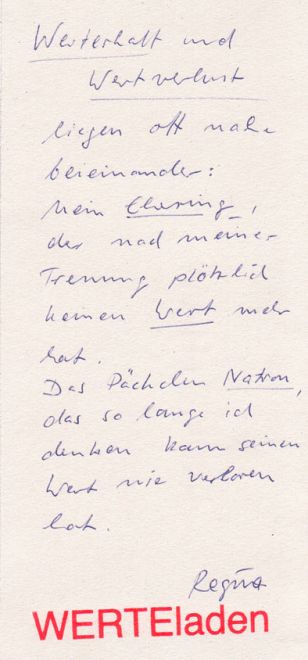 Werterhalt und
Wertverlust
liegen oft nahe
beieinander:
Mein Ehering,
der nach meiner
Trennung plötzlich
keinen Wert mehr
hat.
Das Päckchen Natron,
das so lange ich
denken kann seinen
Wert nie verloren
hat.
Regina
WERTEladen